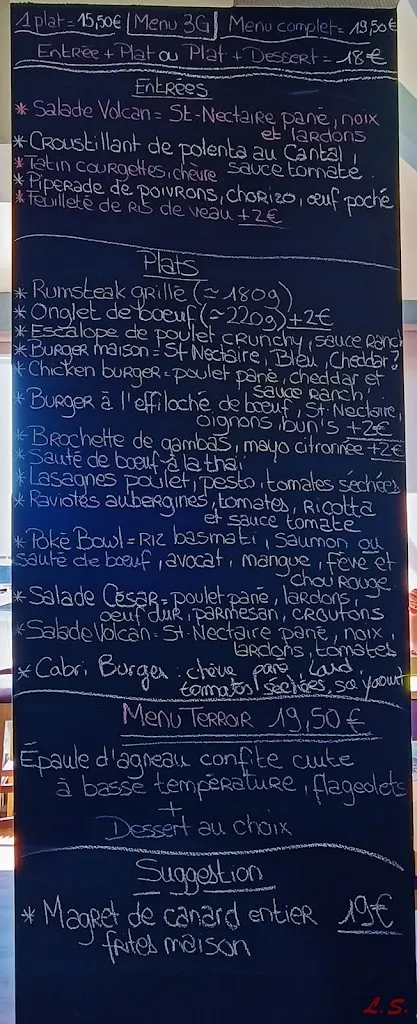 1 plat = 15,50€ | Menu 3G | Menu complet = 19,50€
Entrée + Plat ou Plat + Dessert = 18€
Entrées
* Salade Volcan = St-Nectaire pané, noix
et lardons
* Croustillant de polenta au Cantal,
sauce tomate
* Tatin courgettes, chèvre
* Piperade de poivrons, chorizo, œuf poché
* Feuilleté de Ris de veau +2€
Plats
* Rumsteak grillé (≃180g)
* Onglet de boeuf (≃220g) +2€
* Escalope de poulet crunchy, sauce Ranch
* Burger maison = St Nectaire, Bleu, Cheddar?
* Chicken burger = poulet pané, cheddar et
sauce Ranch,
* Burger à l'effiloché de boeuf, St Nectaire,
oignons, bun's +2€
* Brochette de gambas, mayo citronnée +2€
* Sauté de boeuf à la thaï
* Lasagnes poulet, pesto, tomates séchées
* Ravioles aubergines, tomates, Ricotta
et sauce tomate
* Poké Bowl = Riz basmati, saumon ou
sauté de boeuf, avocat, mangue, fève et
chou Rouge
* Salade César = poulet pané, lardons,
oeuf dur, parmesan, croutons
* Salade Volcan = St-Nectaire pané, noix,
lardons, tomates
* Cabri Burger : chèvre pané, lard,
tomates séchées, sce yaourt
Menu Terroir 19,50€
Épaule d'agneau confite cuite
à basse température, flageolets
+
Dessert au choix
Suggestion
* Magret de canard entier 19€
frites maison
L.S.